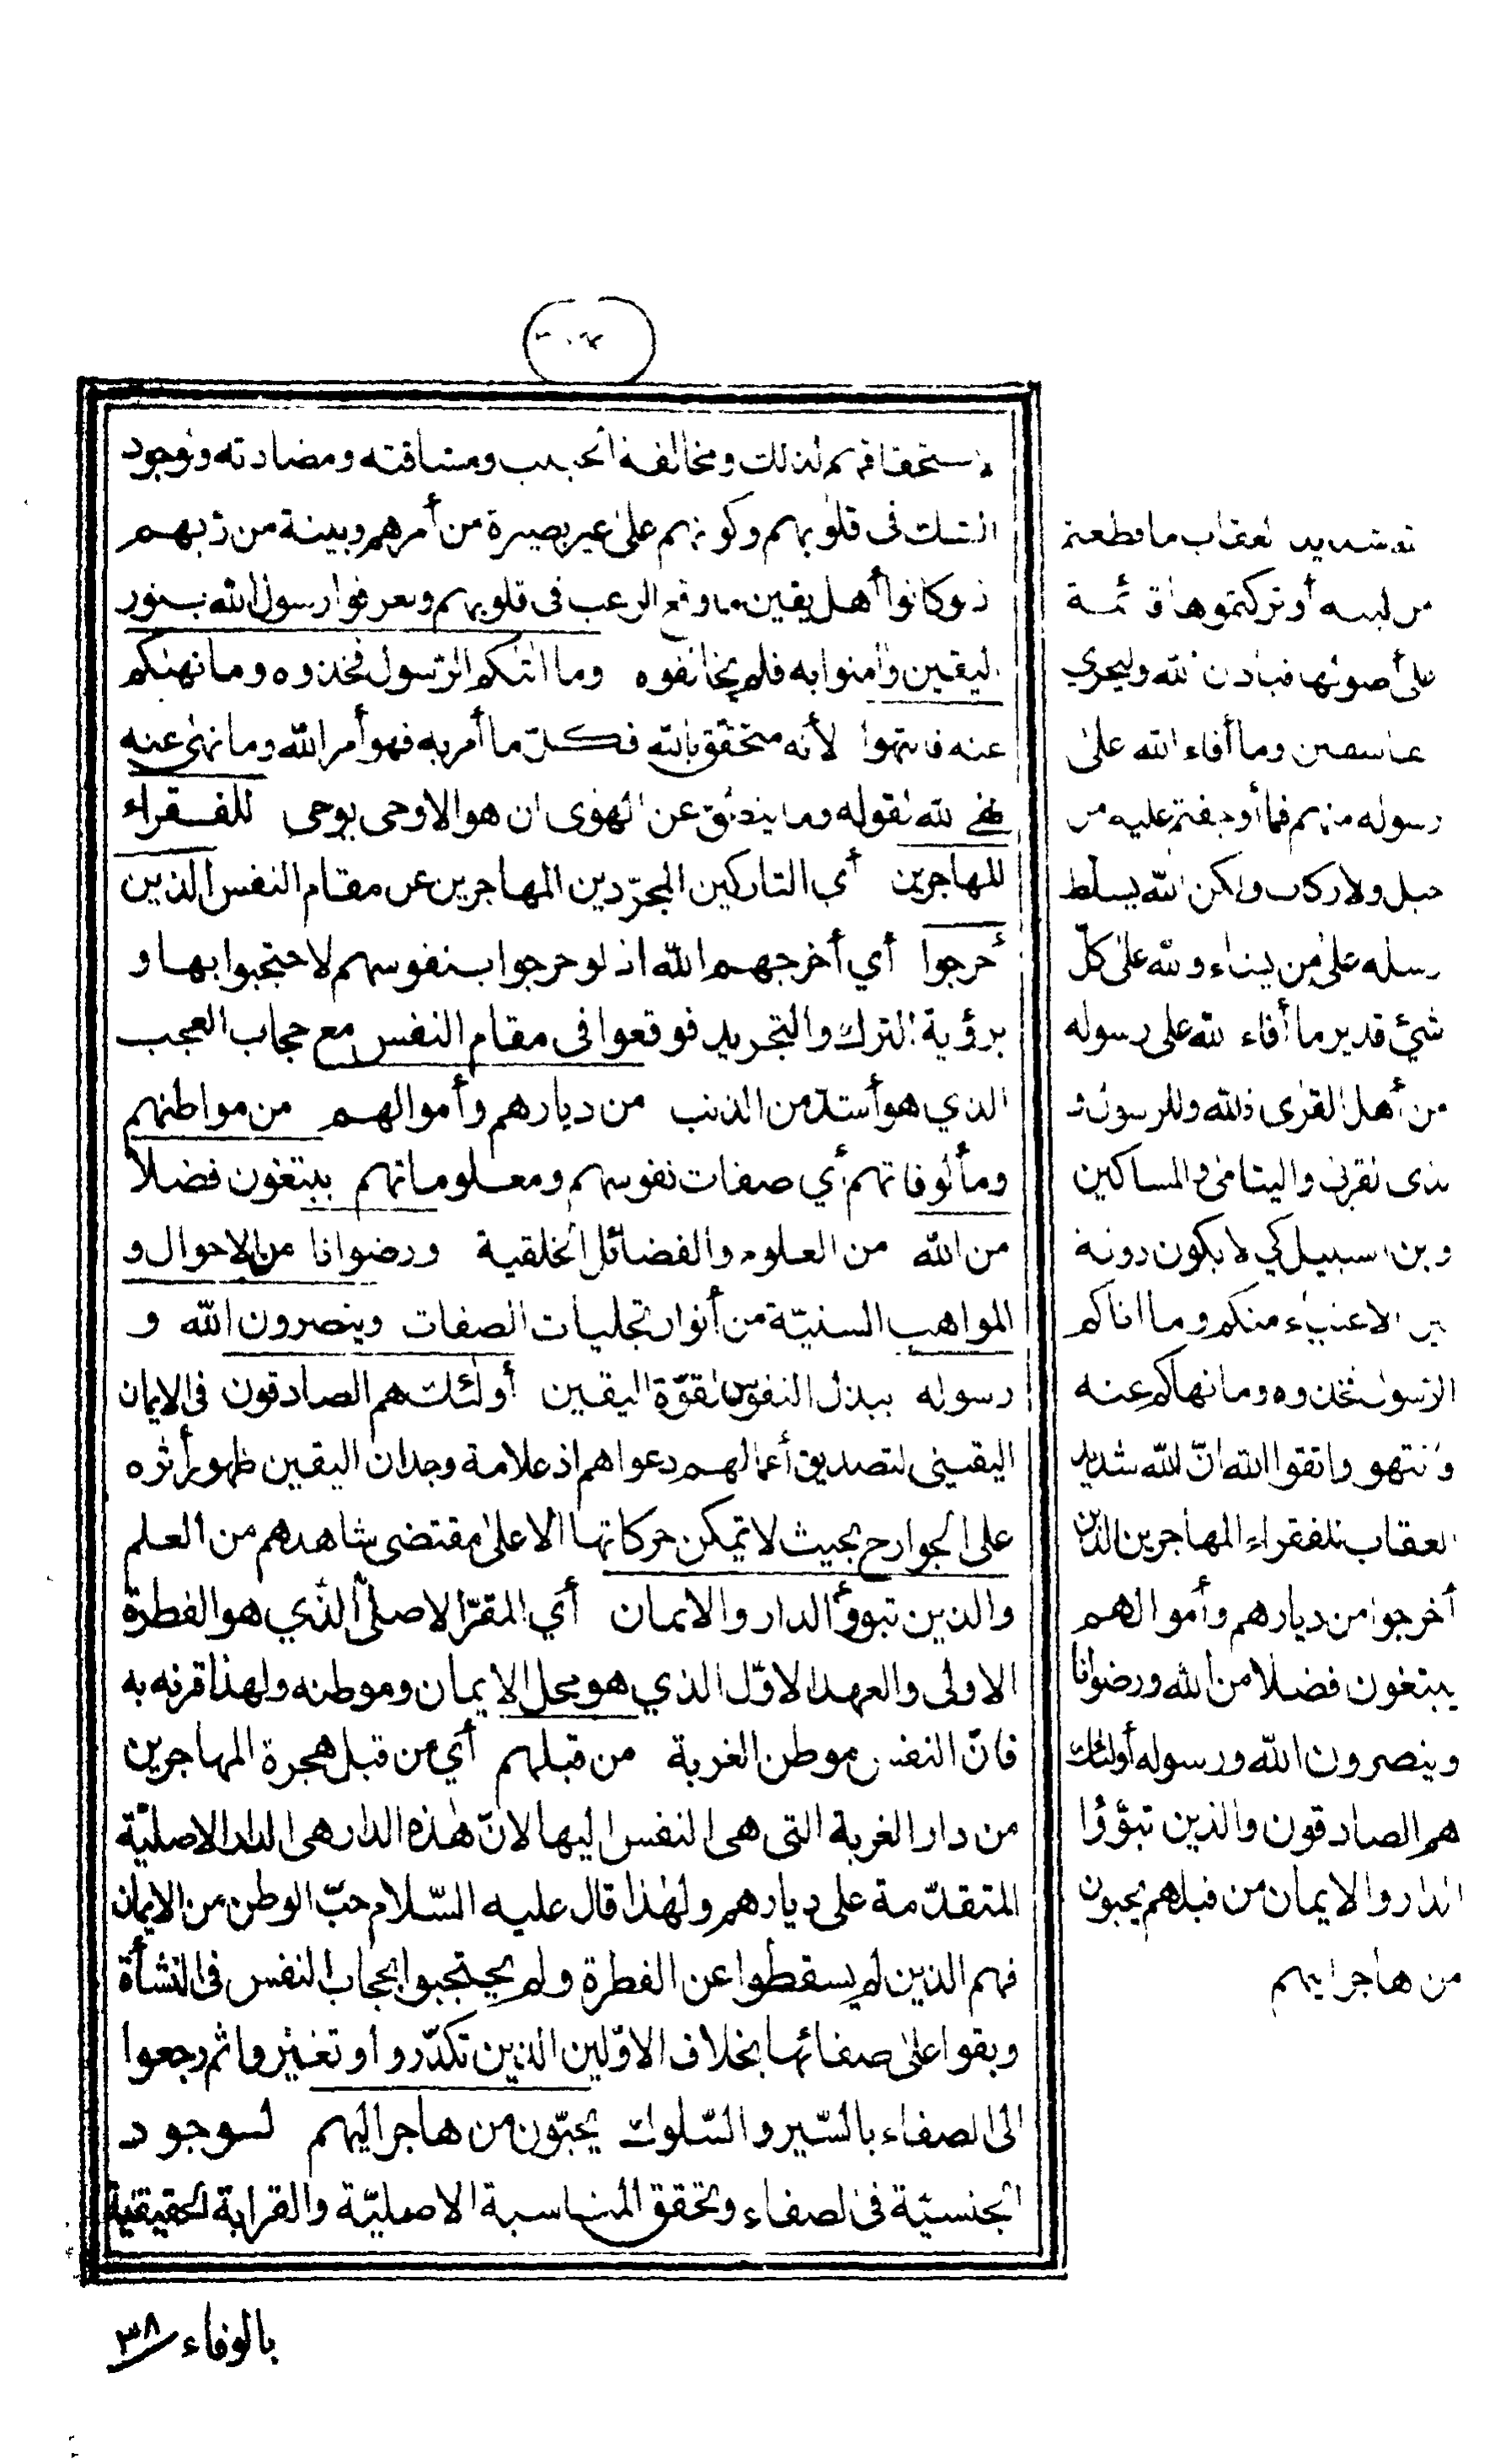 لاستحقاقهم لذلك ومخالفة الحبيب ومشاقته ومضادته ولوجود
الشك فى قلوبهم وكونهم على غير بصيرة من أمرهم وبينة من ربهم
لو كانوا أهل يقين ما وقع الرعب فى قلوبهم ولعرفوا رسول الله بنور
اليقين وآمنوا به فلم يخالفوه وما اتٰكم الرسول فخذوه وما نهٰكم
عنه فانتهوا لأنه متحقق بالله فكلّ ما أمر به فهو أمر الله وما نهى عنه
نهى الله لقوله وما ينطق عن الهوى ان هو الا وحى يوحى للفقراء
المهاجرين أي التاركين المجرّدين المهاجرين عن مقام النفس الذين
أخرجوا أي أخرجهم الله اذ لو خرجوا بنفوسهم لاحتجبوا بها و
برؤية الترك والتجريد فوقعوا فى مقام النفس مع حجاب العجب
الذي هو أشد من الذنب من ديارهم وأموالهم من مواطنهم
ومألوفاتهم أي صفات نفوسهم ومعلوماتهم يبتغون فضلا
من الله من العلوم والفضائل الخلقية ورضوانا من الاحوال و
المواهب السنيّة من أنوار تجليات الصفات وينصرون الله و
رسوله ببذل النفوس لقوّة اليقين أولئك هم الصادقون فى الايمان
اليقينى لتصديق أعمالهم دعواهم اذ علامة وجدان اليقين ظهور أثره
على الجوارح بحيث لا تمكن حركاتها الا على مقتضى شاهدهم من العلم
والذين تبوؤ الدار والايمان أي المقرّ الاصلىّ الذي هو الفطرة
الاولى والعهد الاوّل الذي هو محل الايمان وموطنه ولهذا قرنه به
فانّ النفس موطن الغربة من قبلهم أي من قبل هجرة المهاجرين
من دار الغربة التى هى النفس اليها لانّ هذه الدار هى الدار الاصليّة
المتقدّمة على ديارهم ولهٰذا قال عليه السّلام حبّ الوطن من الايمان
فهم الذين لم يسقطوا عن الفطرة ولم يحتجبوا بحجاب النفس فى النشأة
وبقوا على صفائها بخلاف الاوّلين الذين تكدّروا وتغيّروا ثم رجعوا
الى الصفاء بالسّير والسّلوك يحبّون من هاجر اليهم لوجود
الجنسيّة فى الصفاء وتحقق المناسبة الاصليّة والقرابة الحقيقية
شديد العقاب ما قطعتم
من لينه أو تركتموها قائمة
على أصولها فبإذن الله وليخزي
الفاسقين وما أفاء الله على
رسوله منهم فما أوجفتم عليه من
خيل ولا ركاب ولكن الله يسلط
رسله على من يشاء والله على كلّ
شئ قدير ما أفاء الله على رسوله
من أهل القرى فلله وللرسول و
لذى القربى واليتامى والمساكين
وابن السبيل كي لا يكون دولة
بين الاغنياء منكم وما اتاكم
الرسول فخذوه وما نهاكم عنه
فانتهوا واتقوا الله انّ الله شديد
العقاب للفقراء المهاجرين الذين
أخرجوا من ديارهم وأموالهم
يبتغون فضلا من الله ورضوانا
وينصرون الله ورسوله أولئك
هم الصادقون والذين تبوّؤا
الدار والايمان من قبلهم يحبون
من هاجر اليهم
بالوفاء ٣٨